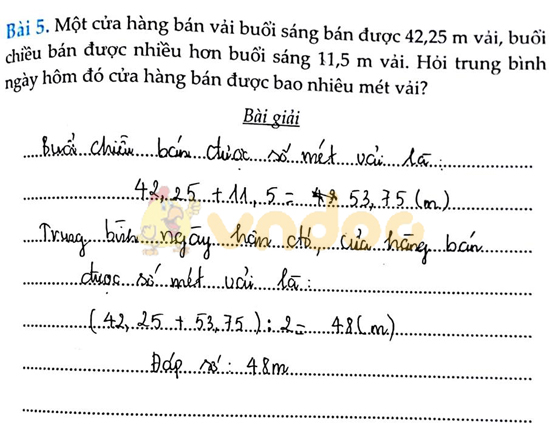 Bài 5. Một cửa hàng bán vải buổi sáng bán được 42,25 m vải, buổi
chiều bán được nhiều hơn buổi sáng 11,5 m vải. Hỏi trung bình
ngày hôm đó cửa hàng bán được bao nhiêu mét vải?
Bài giải
Buổi chiều bán được số mét vải là:
42,25 + 11,5 = 53,75 (m)
Trung bình ngày hôm đó, cửa hàng bán
được số mét vải là:
(42,25 + 53,75) : 2 = 48 (m)
Đáp số: 48m
vndoc